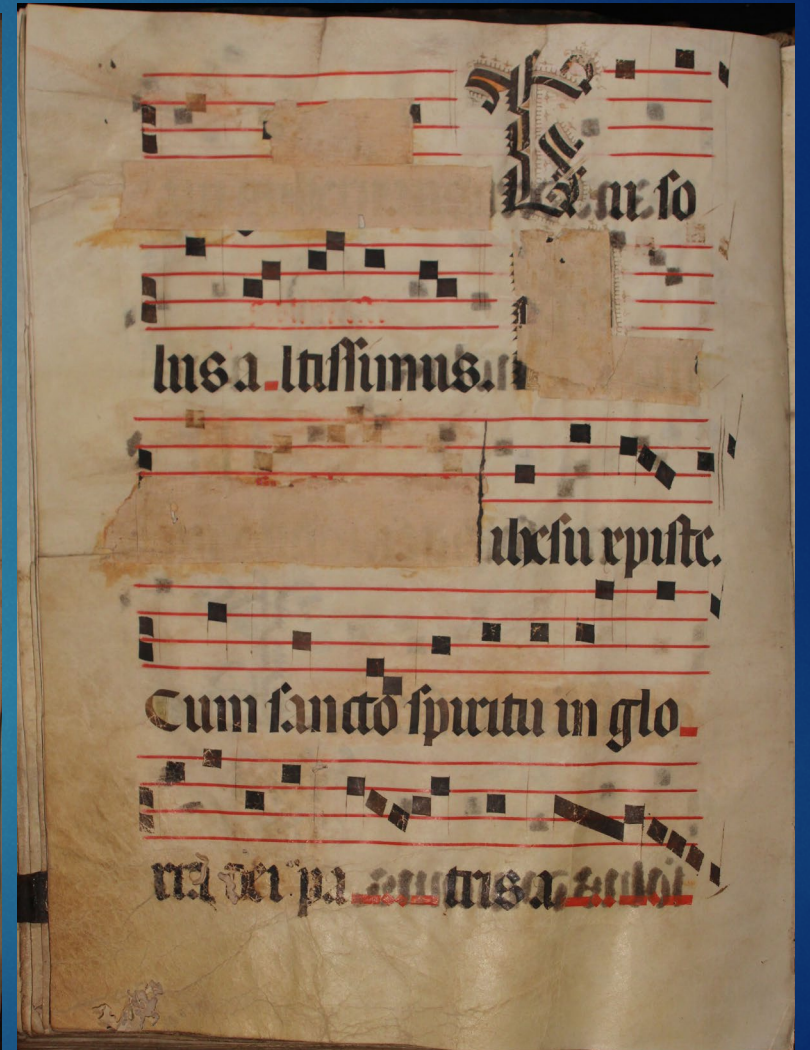 Tu so
lus a ltissimus.
ihesu xpiste.
Cum sancto spiritu in glo
ria dei pa tris a